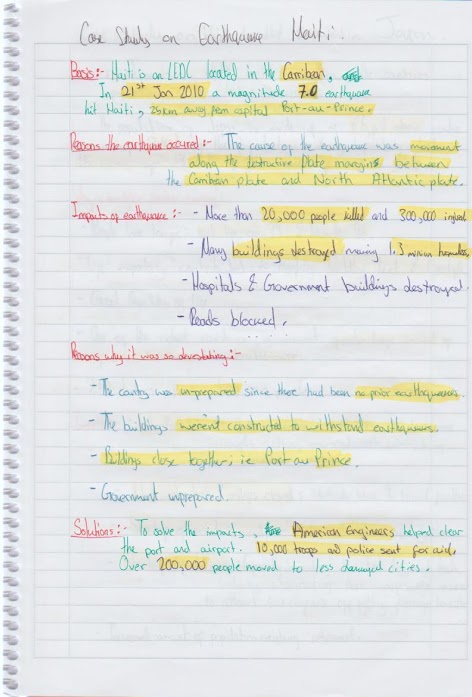 Case Study on Earthquake Haiti.
Basis:- Haiti is an LEDC located in the Carriban,
In 21st Jan 2010 a magnitude 7.0 earthquake
hit Haiti, 25km away from capital Port-au-Prince.
Reasons the earthquake occured:- The cause of the earthquake was movement
along the destructive plate margins between
the Carribean plate and North Atlantic plate.
Impacts of earthquake:- - More than 20,000 people killed and 300,000 injured
- Many buildings destroyed making 1.3 million homeless
- Hospitals & Government buildings destroyed.
- Roads blocked.
Reasons why it was so devastating:-
- The country was unprepared since there had been no prior earthquakes.
- The buildings weren't constructed to withstand earthquakes.
- Buildings close together, ie Port au Prince.
- Government unprepared.
Solutions:- To solve the impacts, American Engineers helped clear
the port and airport. 10,000 troops and police sent for aid.
Over 200,000 people moved to less damaged cities.